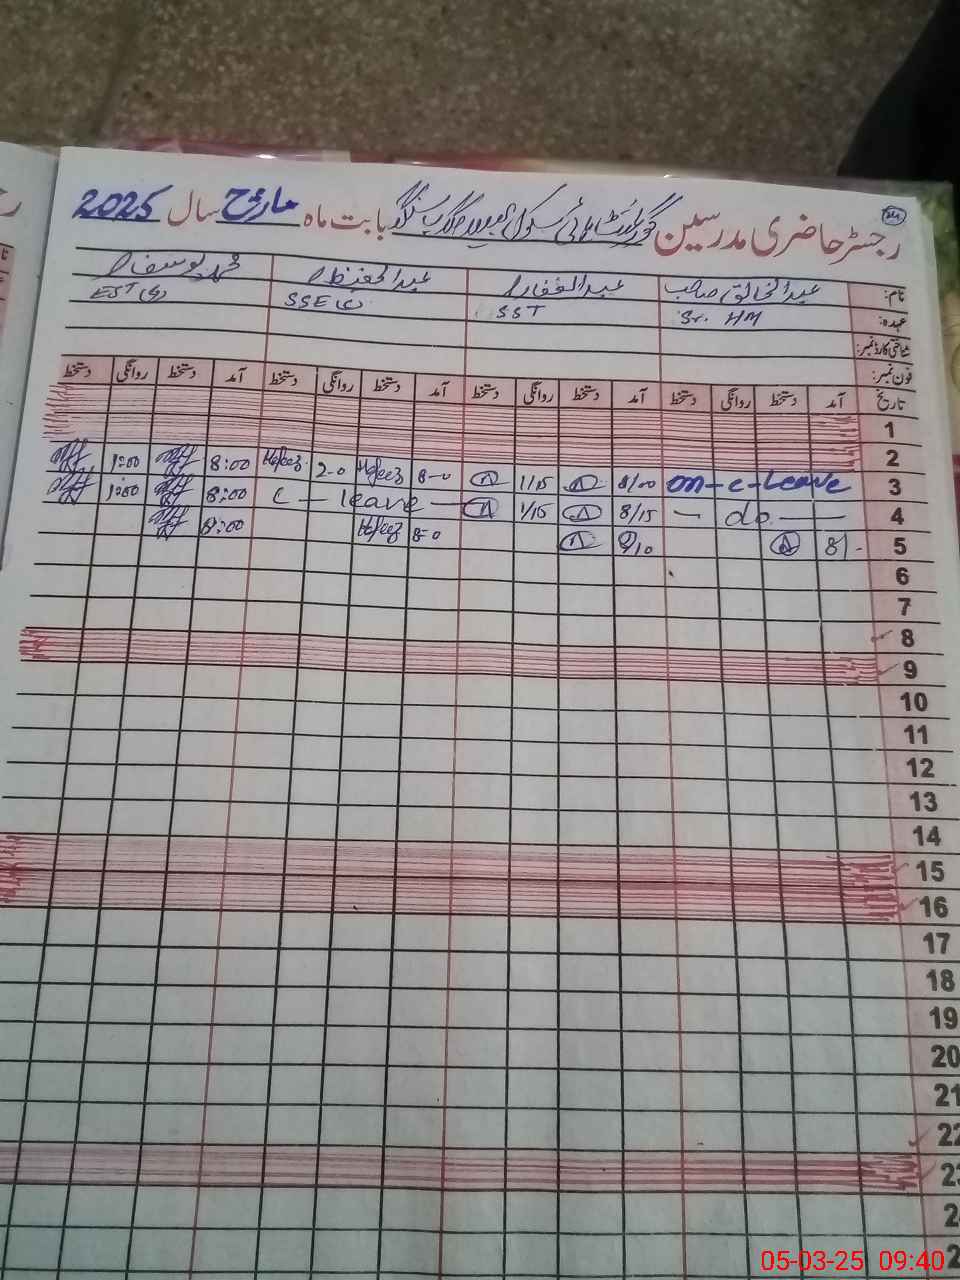 رجسٹر حاضری مدرسین گورنمنٹ ہائی سکول بابت ماہ مارچ سال 2025
نام: عبدالخالق صاحب عبدالغفار عبدالحفیظ محمد یوسف
عہدہ: Sr. HM SST SSE EST
شناختی کارڈ نمبر:
فون نمبر:
تاریخ آمد دستخط روانگی دستخط آمد دستخط روانگی دستخط آمد دستخط روانگی دستخط آمد دستخط روانگی دستخط
1
2
3 on-c-Leave 8/00 1/15 8-0 Hafeez 2-0 Hafeez 8:00 1:00
4 — do — 8/15 1/15 c - leave - 8:00 1:00
5 8/- 8/10 8-0 Hafeez 8:00
6
7
8
9
10
11
12
13
14
15
16
17
18
19
20
21
22
23
05-03-25 09:40